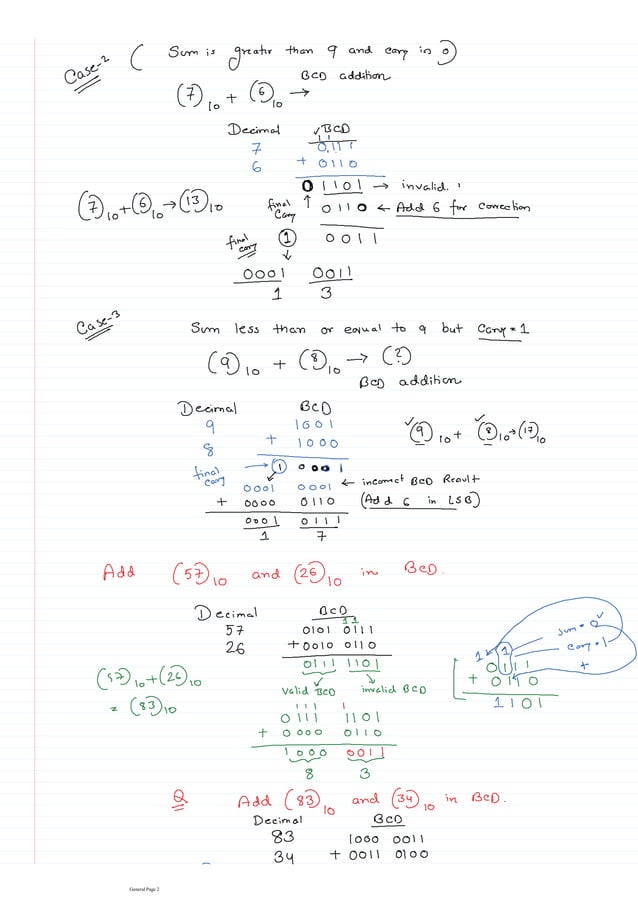 Case-2 ( Sum is greater than 9 and carry is 0)
BCD addition
(7)10 + (6)10 →
Decimal ✓BCD
1 1
7 0111
6 + 0110
0 1101 → invalid.
(7)10+(6)10→(13)10
final carry ↑ 0110 ← Add 6 for correction
final carry 1 0011
↓
0001 0011
1 3
Case-3 Sum less than or equal to 9 but Carry = 1
(9)10 + (8)10 → (?)
BCD addition
Decimal BCD
9 1001
8 + 1000
(9)10 + (8)10→(17)10
final carry → 1 0001
0001 0001 ← incorrect BCD Result
+ 0000 0110 (Add 6 in LSB)
0001 0111
1 7
Add (57)10 and (26)10 in BCD.
Decimal BCD
1 1
57 0101 0111
26 +0010 0110
0111 1101
valid BCD invalid BCD
(57)10+(26)10
= (83)10
1 1 1 1
0111 1101
+ 0000 0110
1000 0011
8 3
sum = 0
carry = 1
+
1 1
0111
+ 0110
1101
Q Add (83)10 and (34)10 in BCD.
Decimal BCD
83 1000 0011
34 + 0011 0100
General Page 2